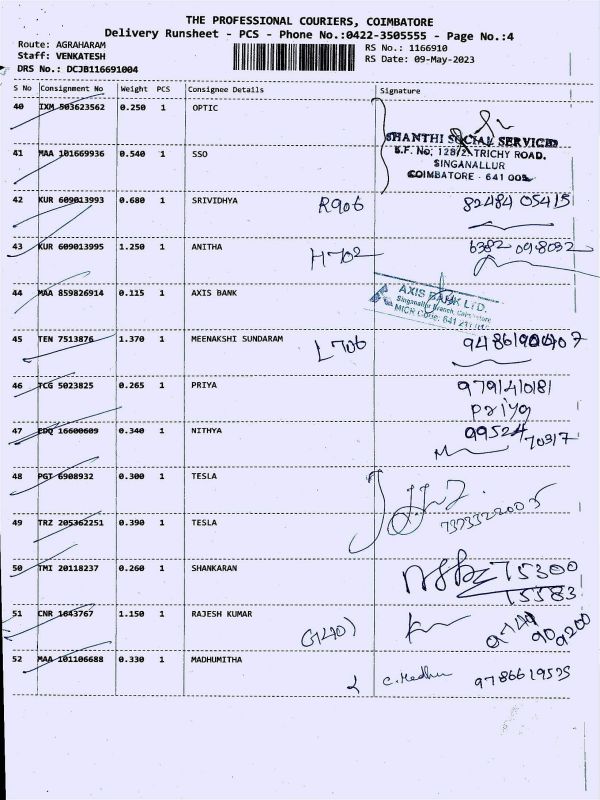 THE PROFESSIONAL COURIERS, COIMBATORE
Delivery Runsheet - PCS - Phone No.:0422-3505555 - Page No.:4
Route: AGRAHARAM
Staff: VENKATESH
DRS No.: DCJB116691004
RS No.: 1166910
RS Date: 09-May-2023
S No Consignment No Weight PCS Consignee Details Signature
40 IXM 503623562 0.250 1 OPTIC
SHANTHI SOCIAL SERVICES
S.F. No. 128/2, TRICHY ROAD.
SINGANALLUR
COIMBATORE - 641 005
41 MAA 101669936 0.540 1 SSO
42 KUR 609013993 0.680 1 SRIVIDHYA R906 82484 05415
43 KUR 609013995 1.250 1 ANITHA H702 6382098032
44 MAA 859826914 0.115 1 AXIS BANK
AXIS BANK LTD.
Singanallur Branch, Coimbatore
MICR Code: 641
45 TEN 7513876 1.370 1 MEENAKSHI SUNDARAM L706
46 TCG 5023825 0.265 1 PRIYA 9791410181
Priya
47 EDQ 16600609 0.340 1 NITHYA 99524
70317
48 PGT 6908932 0.300 1 TESLA
49 TRZ 205362251 0.390 1 TESLA
50 TMI 20118237 0.260 1 SHANKARAN 75300
15583
51 CNR 1643767 1.150 1 RAJESH KUMAR
52 MAA 101106688 0.330 1 MADHUMITHA C. Madhu 9786619535